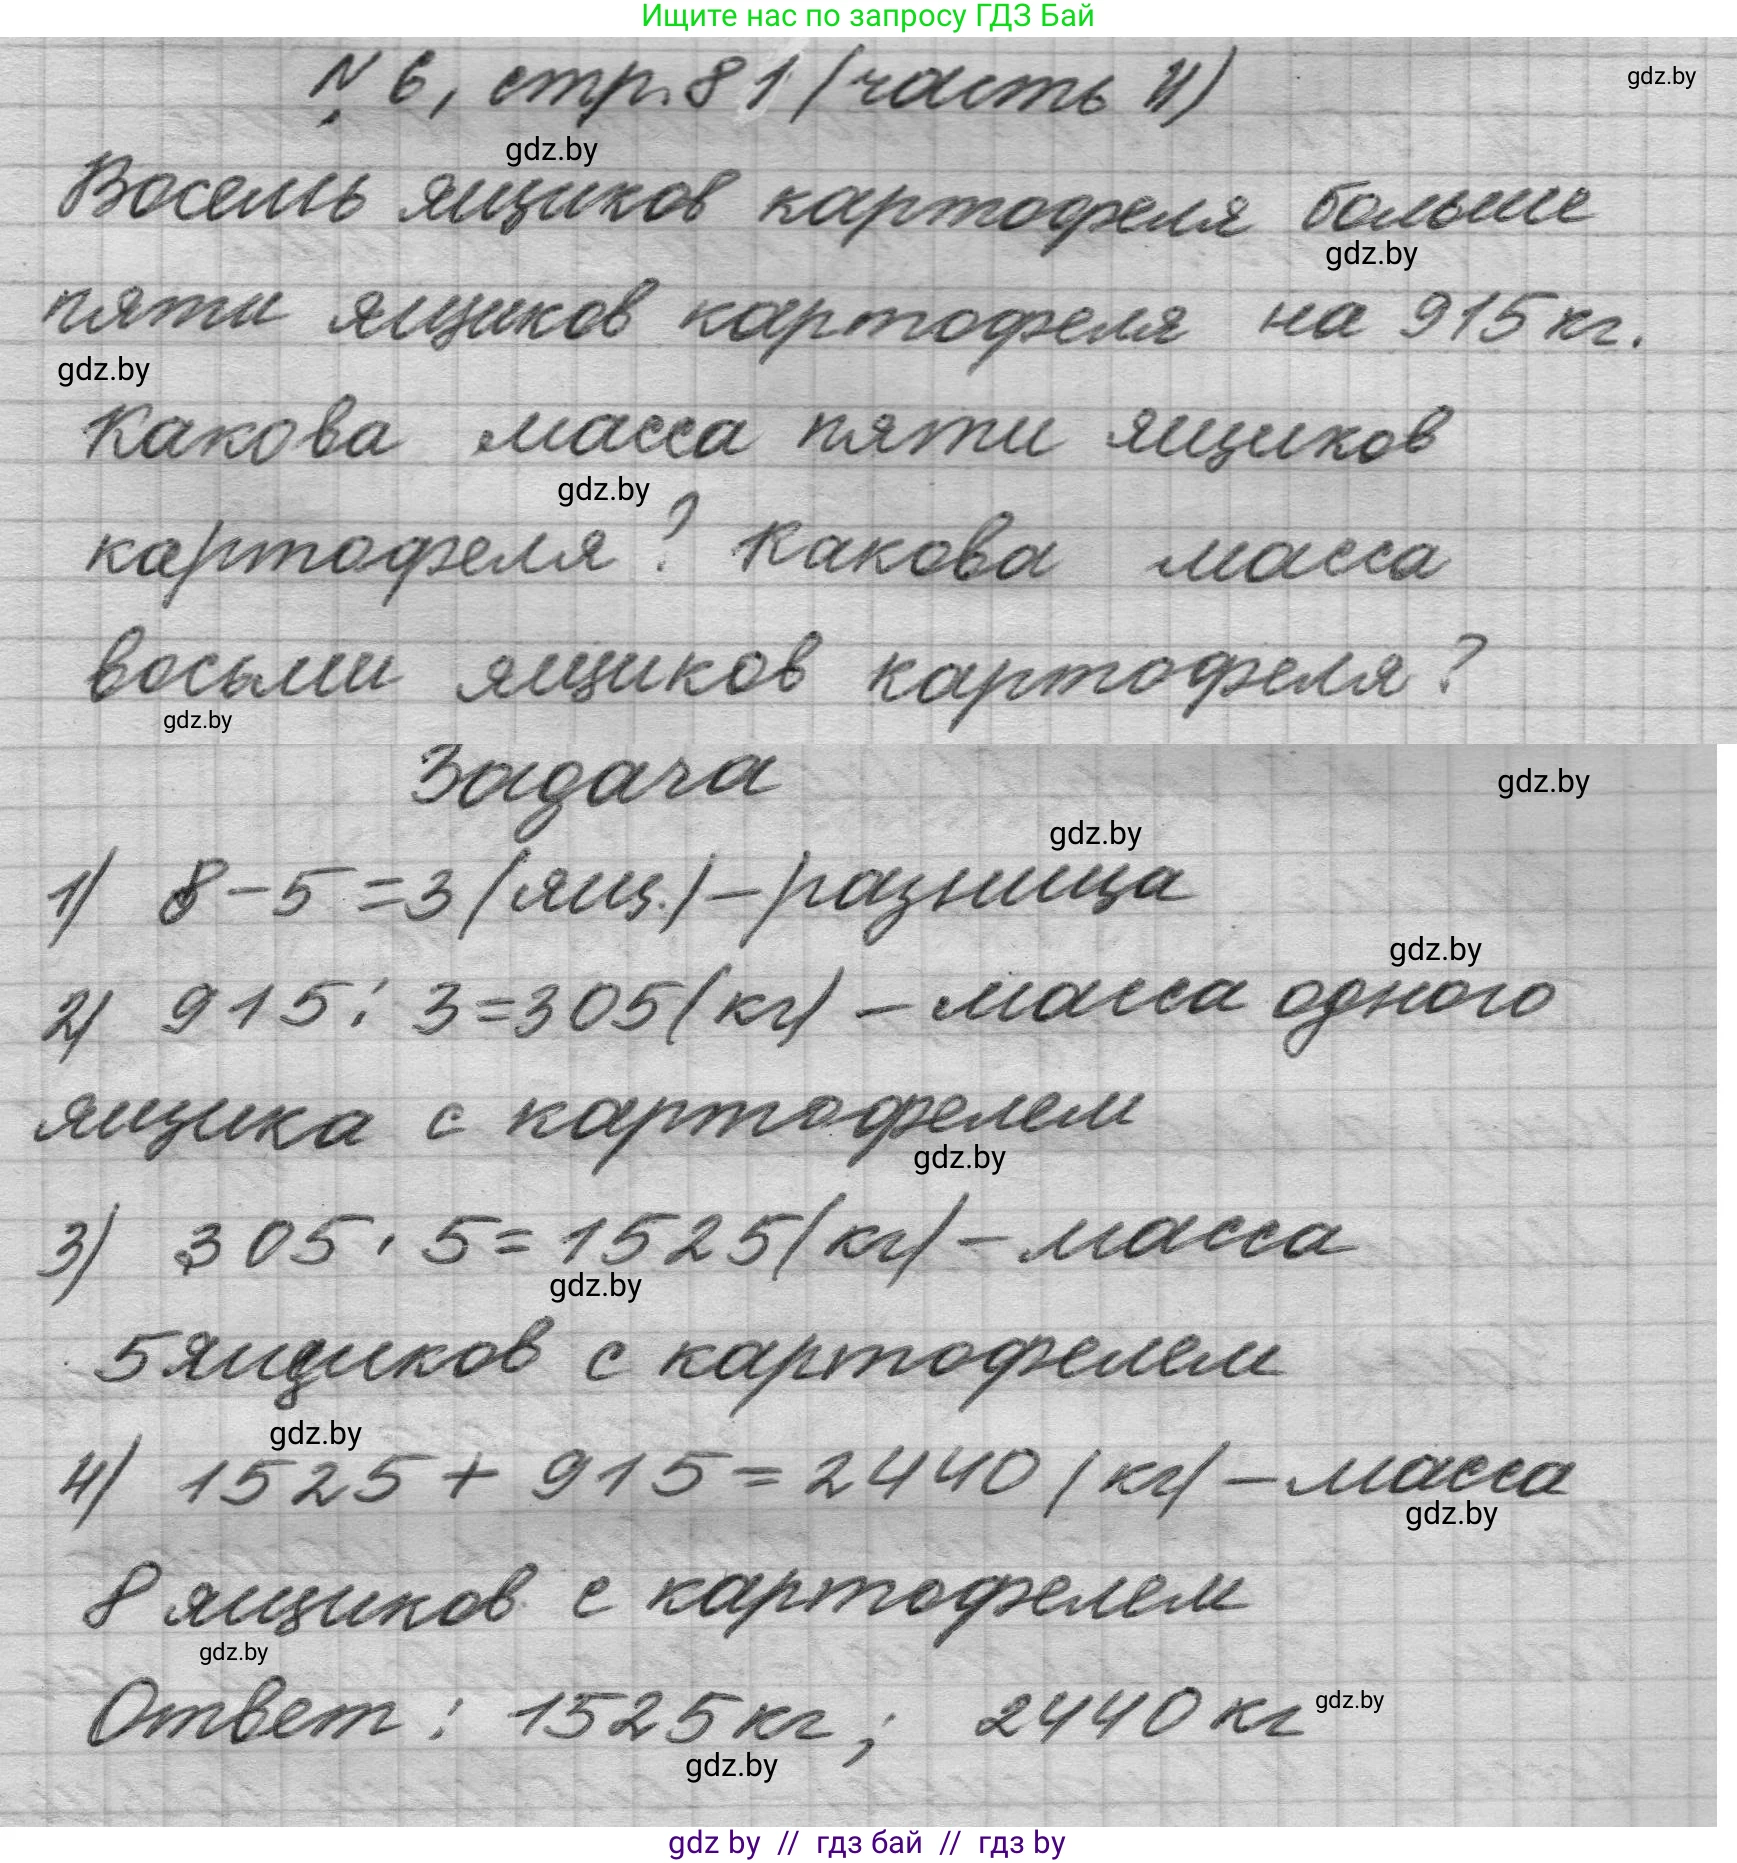 Ищите нас по запросу ГДЗ Бай
№ 6, стр. 81 (часть II)
gdz.by
gdz.by
Восемь ящиков картофеля больше
gdz.by
пяти ящиков картофеля на 915 кг.
gdz.by
Какова масса пяти ящиков
gdz.by
картофеля? Какова масса
восьми ящиков картофеля?
gdz.by
Задача
gdz.by
gdz.by
1) 8 - 5 = 3 (ящ.) - разница
gdz.by
2) 915 : 3 = 305 (кг) - масса одного
ящика с картофелем
gdz.by
3) 305 · 5 = 1525 (кг) - масса
gdz.by
5 ящиков с картофелем
gdz.by
4) 1525 + 915 = 2440 (кг) - масса
gdz.by
8 ящиков с картофелем
gdz.by
Ответ : 1525 кг ; 2440 кг
gdz.by
gdz.by
gdz by // гдз бай // гдз by